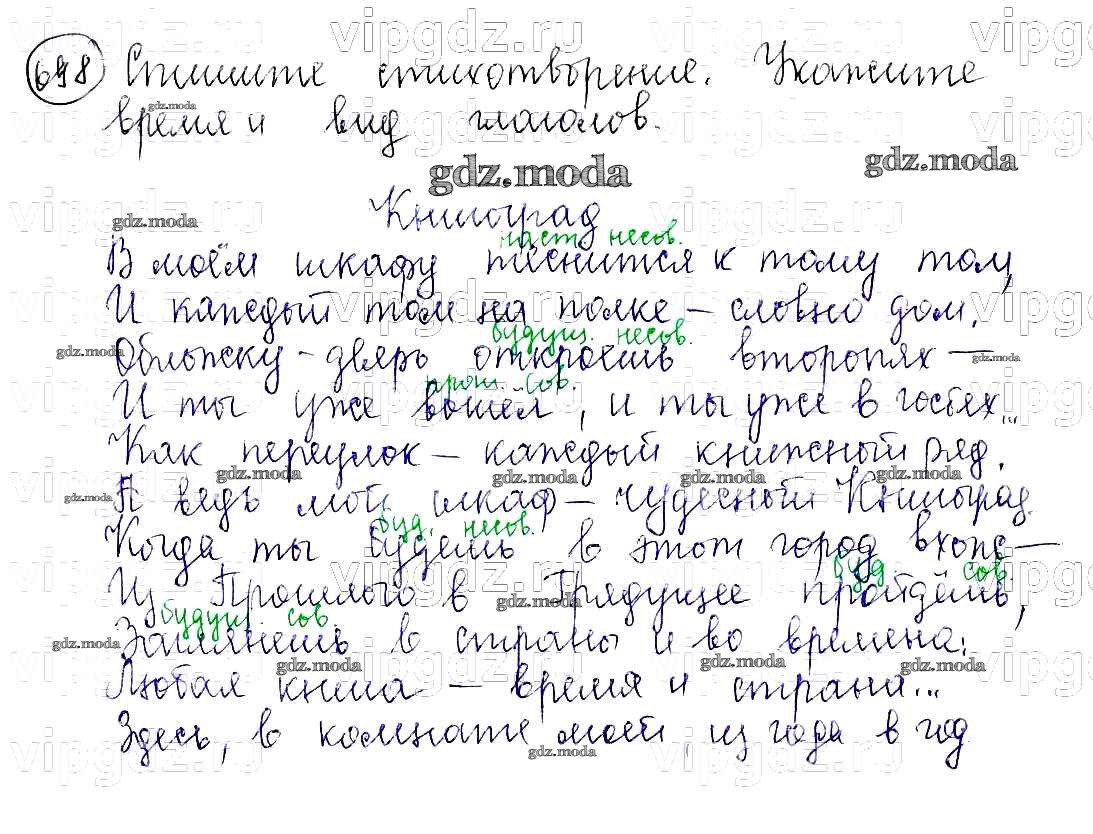 698 Спишите стихотворение. Укажите
время и вид глаголов.
Книгоград
наст. несов.
В моём шкафу теснится к тому том,
И каждый том на полке – словно дом.
будущ. несов.
Обложку – дверь откроешь второпях –
прош. сов.
И ты уже вошёл, и ты уже в гостях...
Как переулок – каждый книжный ряд.
А ведь мой шкаф – чудесный Книгоград.
буд. несов.
Когда ты будешь в этот город вхож –
буд. сов.
Из Прошлого в Грядущее пройдёшь,
будущ. сов.
Заглянешь в страны и во времена:
Любая книга – время и страна...
Здесь, в комнате моей, из года в год